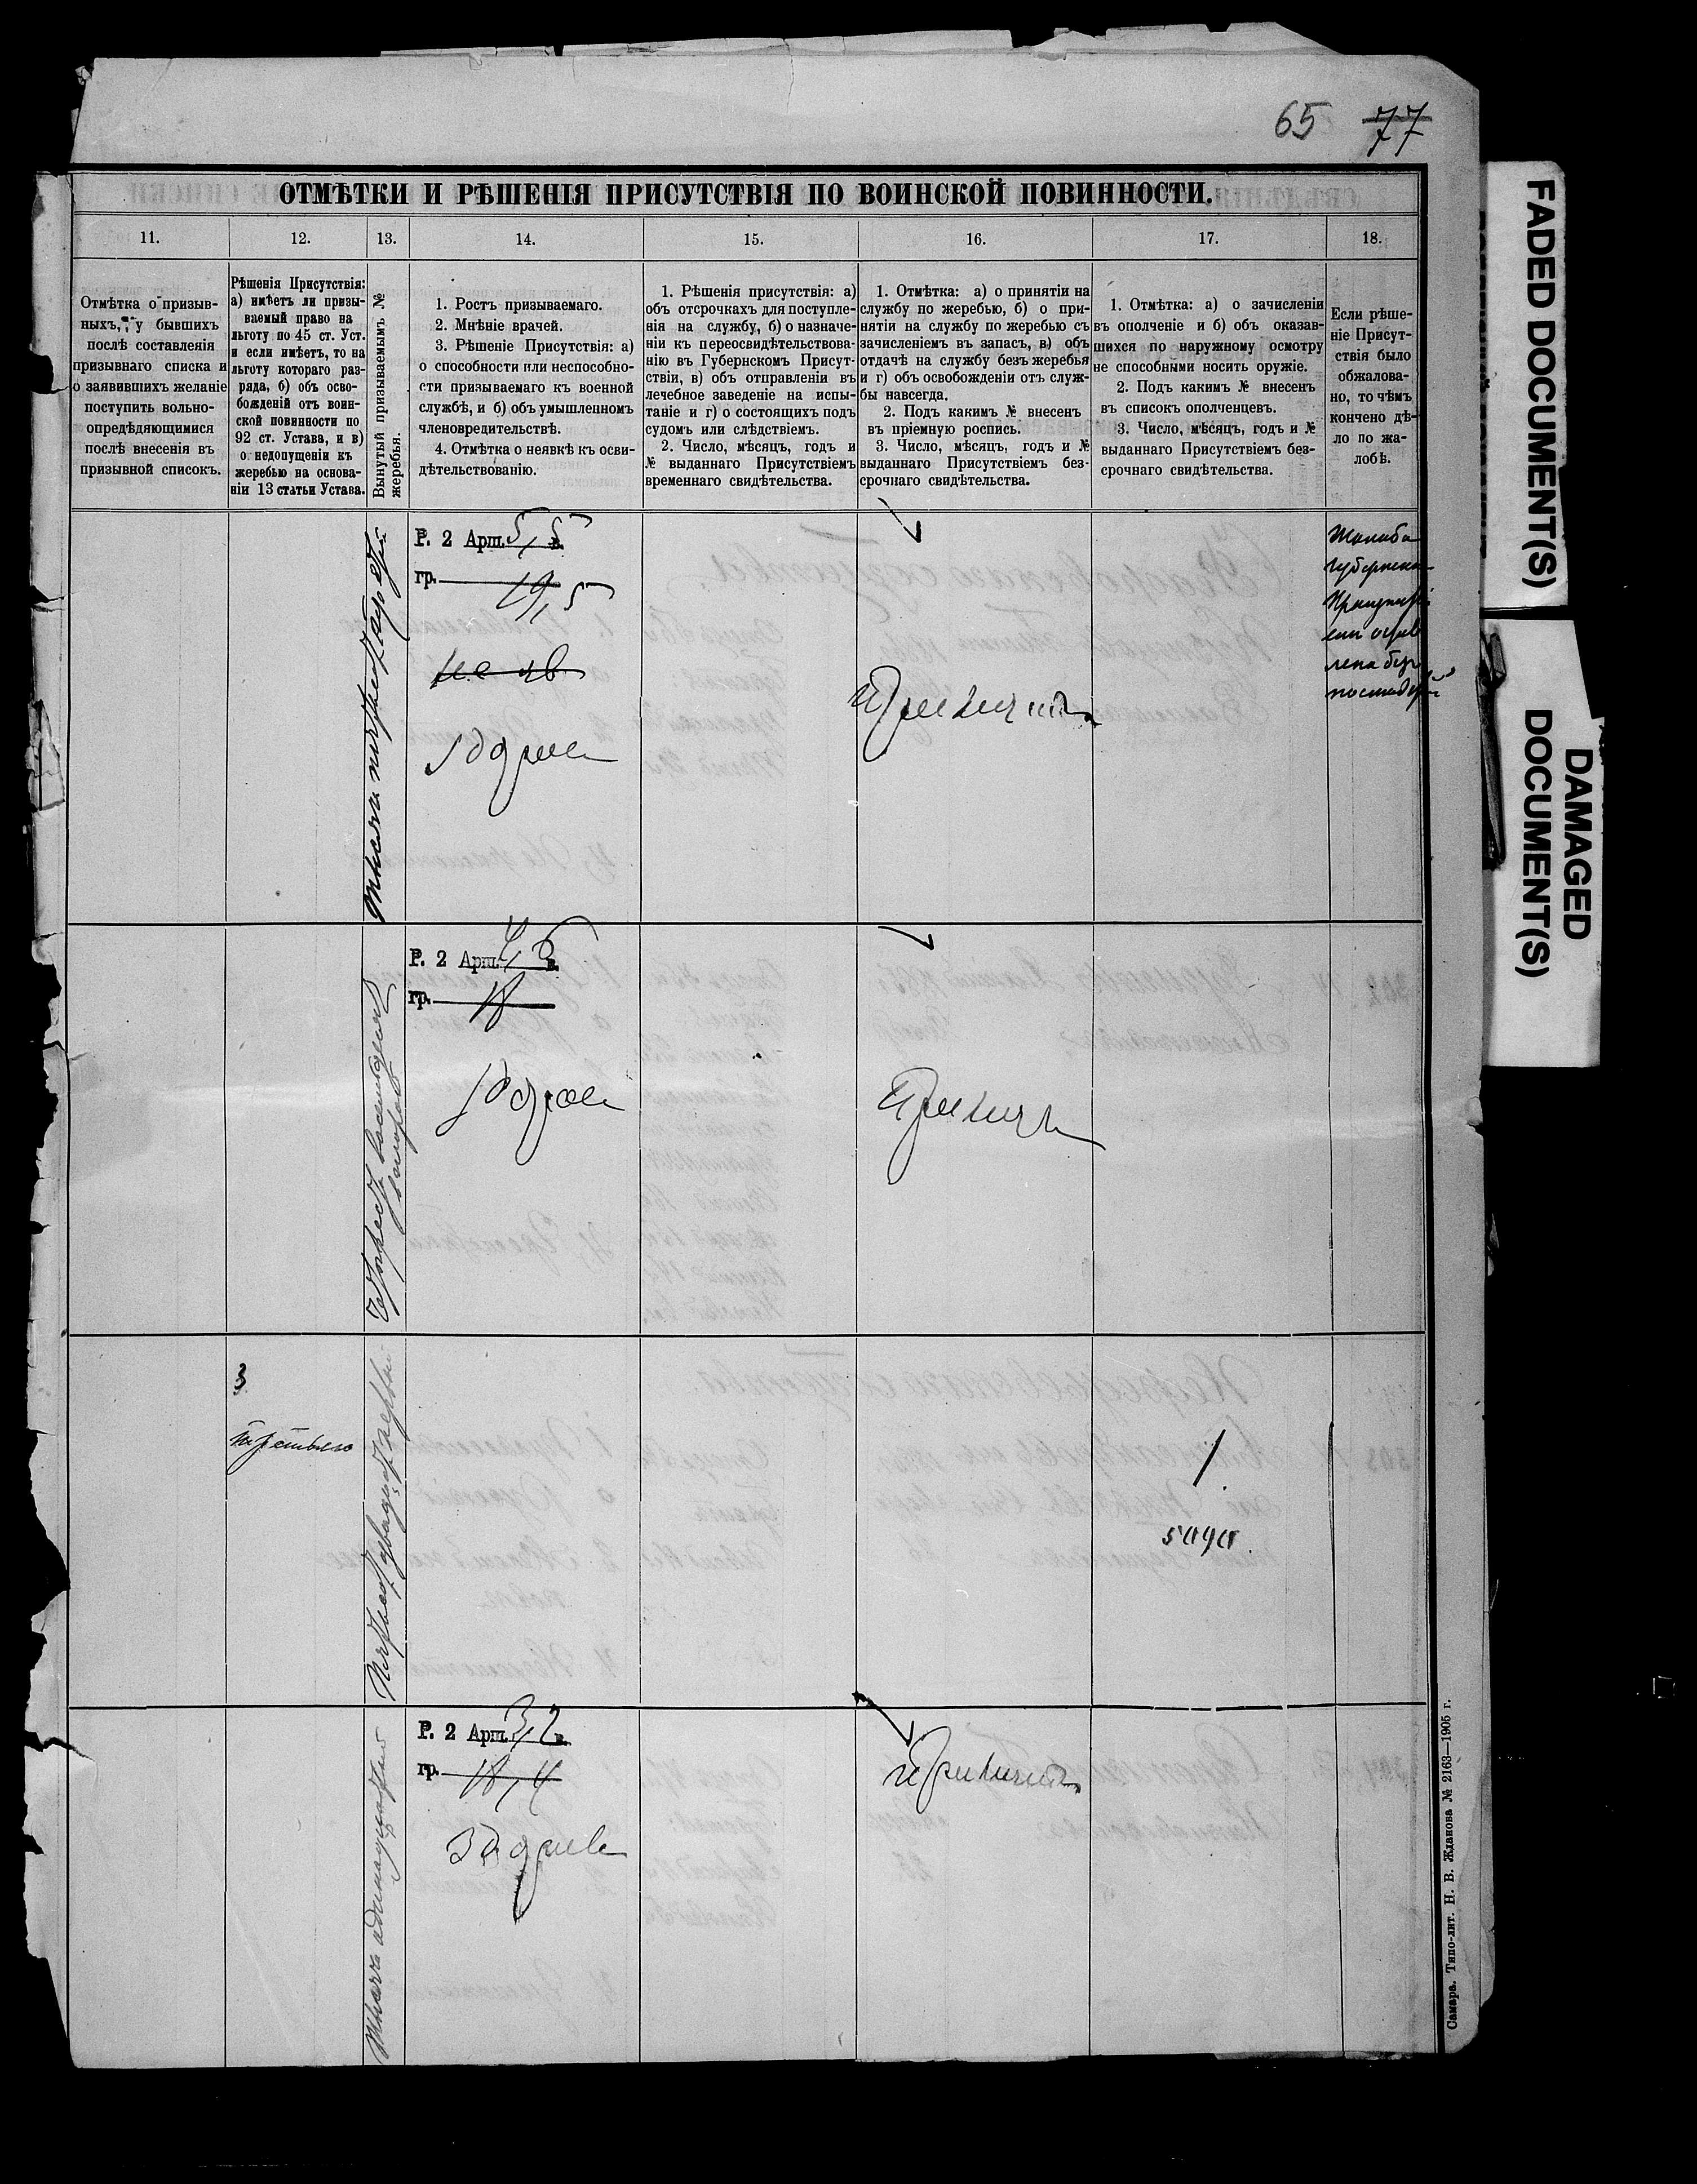 65 77
ОТМѢТКИ И РѢШЕНІЯ ПРИСУТСТВІЯ ПО ВОИНСКОЙ ПОВИННОСТИ.
11. 12. 13. 14. 15. 16. 17. 18.
Отмѣтка о призыв-
ныхъ, у бывшихъ
послѣ составленія
призывнаго списка и
о заявившихъ желаніе
поступить вольно-
опредѣляющимися
послѣ внесенія въ
призывной списокъ.
Рѣшенія Присутствія:
а) имѣетъ ли призы-
ваемый право на
льготу по 45 ст. Уст.
и если имѣетъ, то на
льготу котораго раз-
ряда, б) объ осво-
божденій отъ воин-
ской повинности по
92 ст. Устава, и в)
о недопущеніи къ
жеребью на основа-
ніи 13 статьи Устава.
Вынутый призываемымъ №
жеребья.
1. Ростъ призываемаго.
2. Мнѣніе врачей.
3. Рѣшеніе Присутствія: а)
о способности или неспособно-
сти призываемаго къ военной
службѣ, и б) объ умышленномъ
членовредительствѣ.
4. Отмѣтка о неявкѣ къ осви-
дѣтельствованію.
1. Рѣшенія присутствія: а)
объ отсрочкахъ для поступле-
нія на службу, б) о назначе-
ніи къ переосвидѣтельствова-
нію въ Губернскомъ Присут-
ствіи, в) объ отправленіи въ
лечебное заведеніе на испы-
таніе и г) о состоящихъ подъ
судомъ или слѣдствіемъ.
2. Число, мѣсяцъ, годъ и
№ выданнаго Присутствіемъ
временнаго свидѣтельства.
1. Отмѣтка: а) о принятіи на
службу по жеребью, б) о при-
нятіи на службу по жеребью съ
зачисленіемъ въ запасъ, в) объ
отдачѣ на службу безъ жеребья
и г) объ освобожденіи отъ служ-
бы навсегда.
2. Подъ какимъ № внесенъ
въ пріемную роспись.
3. Число, мѣсяцъ, годъ и №
выданнаго Присутствіемъ без-
срочнаго свидѣтельства.
1. Отмѣтка: а) о зачисленіи
въ ополченіе и б) объ оказав-
шихся по наружному осмотру
не способными носить оружіе.
2. Подъ какимъ № внесенъ
въ списокъ ополченцевъ.
3. Число, мѣсяцъ, годъ и №
выданнаго Присутствіемъ без-
срочнаго свидѣтельства.
Если рѣше-
ніе Присут-
ствія было
обжалова-
но, то чѣмъ
кончено дѣ-
ло по жа-
лобѣ.
Р. 2 Арш. 5,5 в.
гр. 19,5
не яв
Годенъ
Принятъ
Жалоба
губернск
остав
лена безъ
Р. 2 Арш. 4,5 в.
гр. 18
Четыреста восемьдесятъ
второй
Годенъ
Принятъ
3
третьяго
Пятьсот двадцать первый
1
5090
Р. 2 Арш. 3,2 в.
гр. 18,4
Тысяча одинадцатый
Годенъ
Принятъ
Самара. Типо-лит. Н. В. Жданова № 2163—1905 г.
FADED DOCUMENT(S)
DAMAGED
DOCUMENT(S)